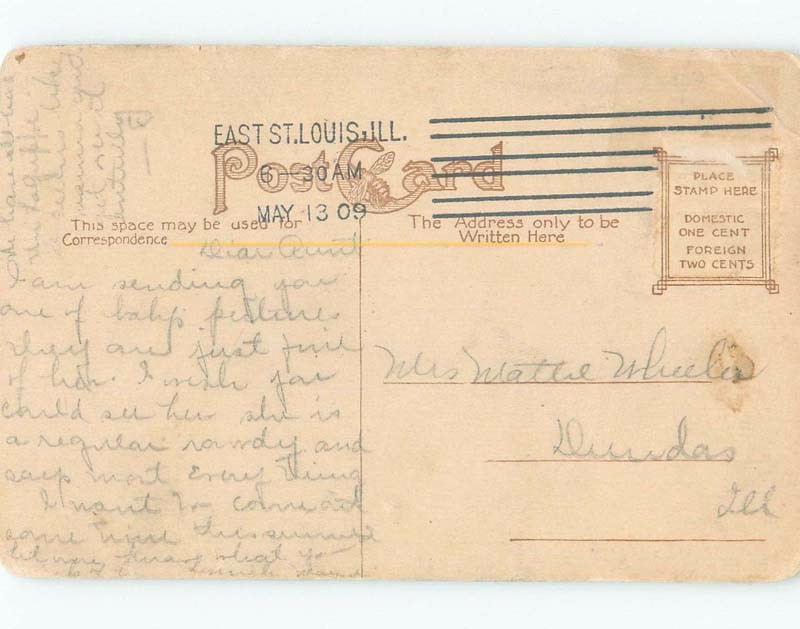 EAST ST. LOUIS, ILL.
6-30 AM
MAY 13 09
Post Card
This space may be used for
Correspondence
The Address only to be
Written Here
PLACE
STAMP HERE
DOMESTIC
ONE CENT
FOREIGN
TWO CENTS
Dear Aunt
I am sending you
one of babys pictures
they are just fine
of her. I wish you
could see her she is
a regular rowdy and
says most every thing
I want to come
some time this summer
let me know what
We have all had
Mrs Mattie Wheeler
Dundas
Ill